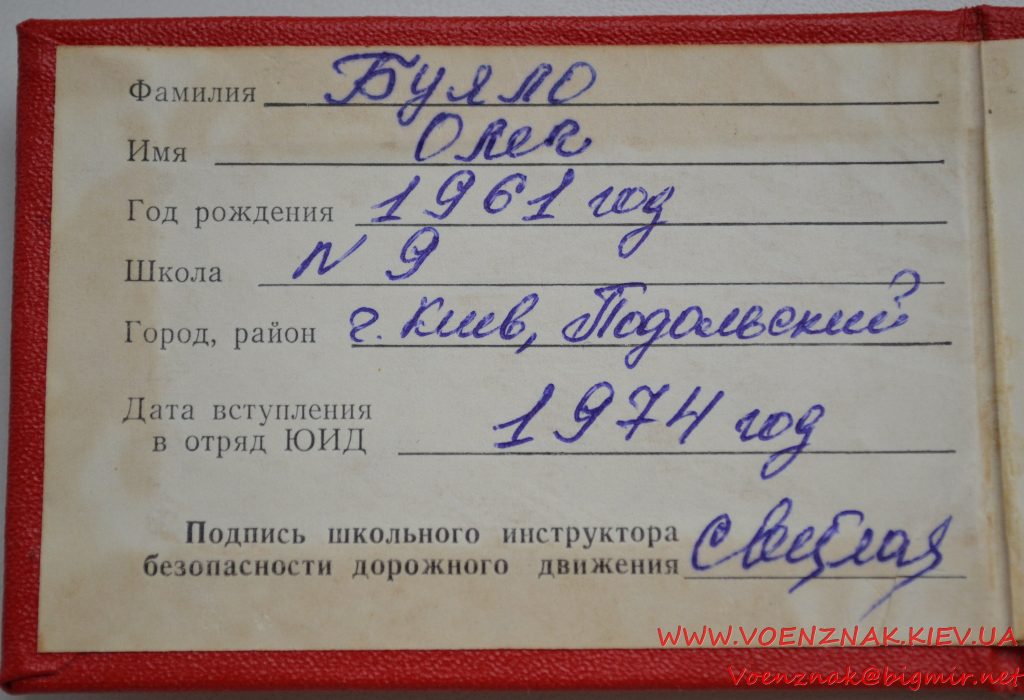 Фамилия Буяло
Имя Олег
Год рождения 1961 год
Школа N 9
Город, район г. Киев, Подольский
Дата вступления
в отряд ЮИД 1974 год
Подпись школьного инструктора
безопасности дорожного движения Светлая
WWW.VOENZNAK.KIEV.UA
Voenznak@bigmir.net